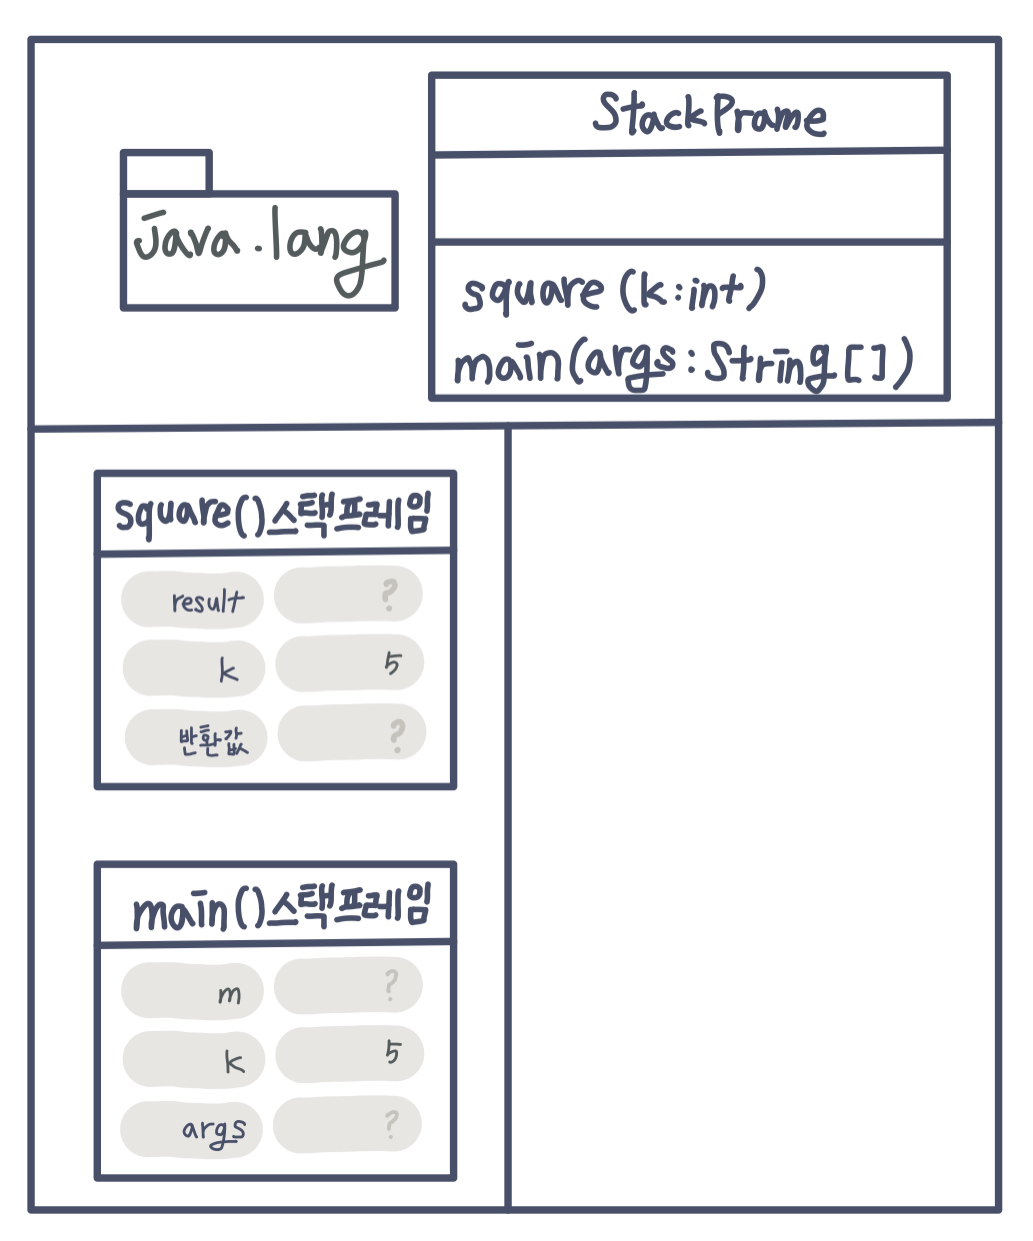 java.lang
StackPrame
square (k:int)
main(args:String[])
square()스택프레임
result ?
k 5
반환값 ?
main()스택프레임
m ?
k 5
args ?